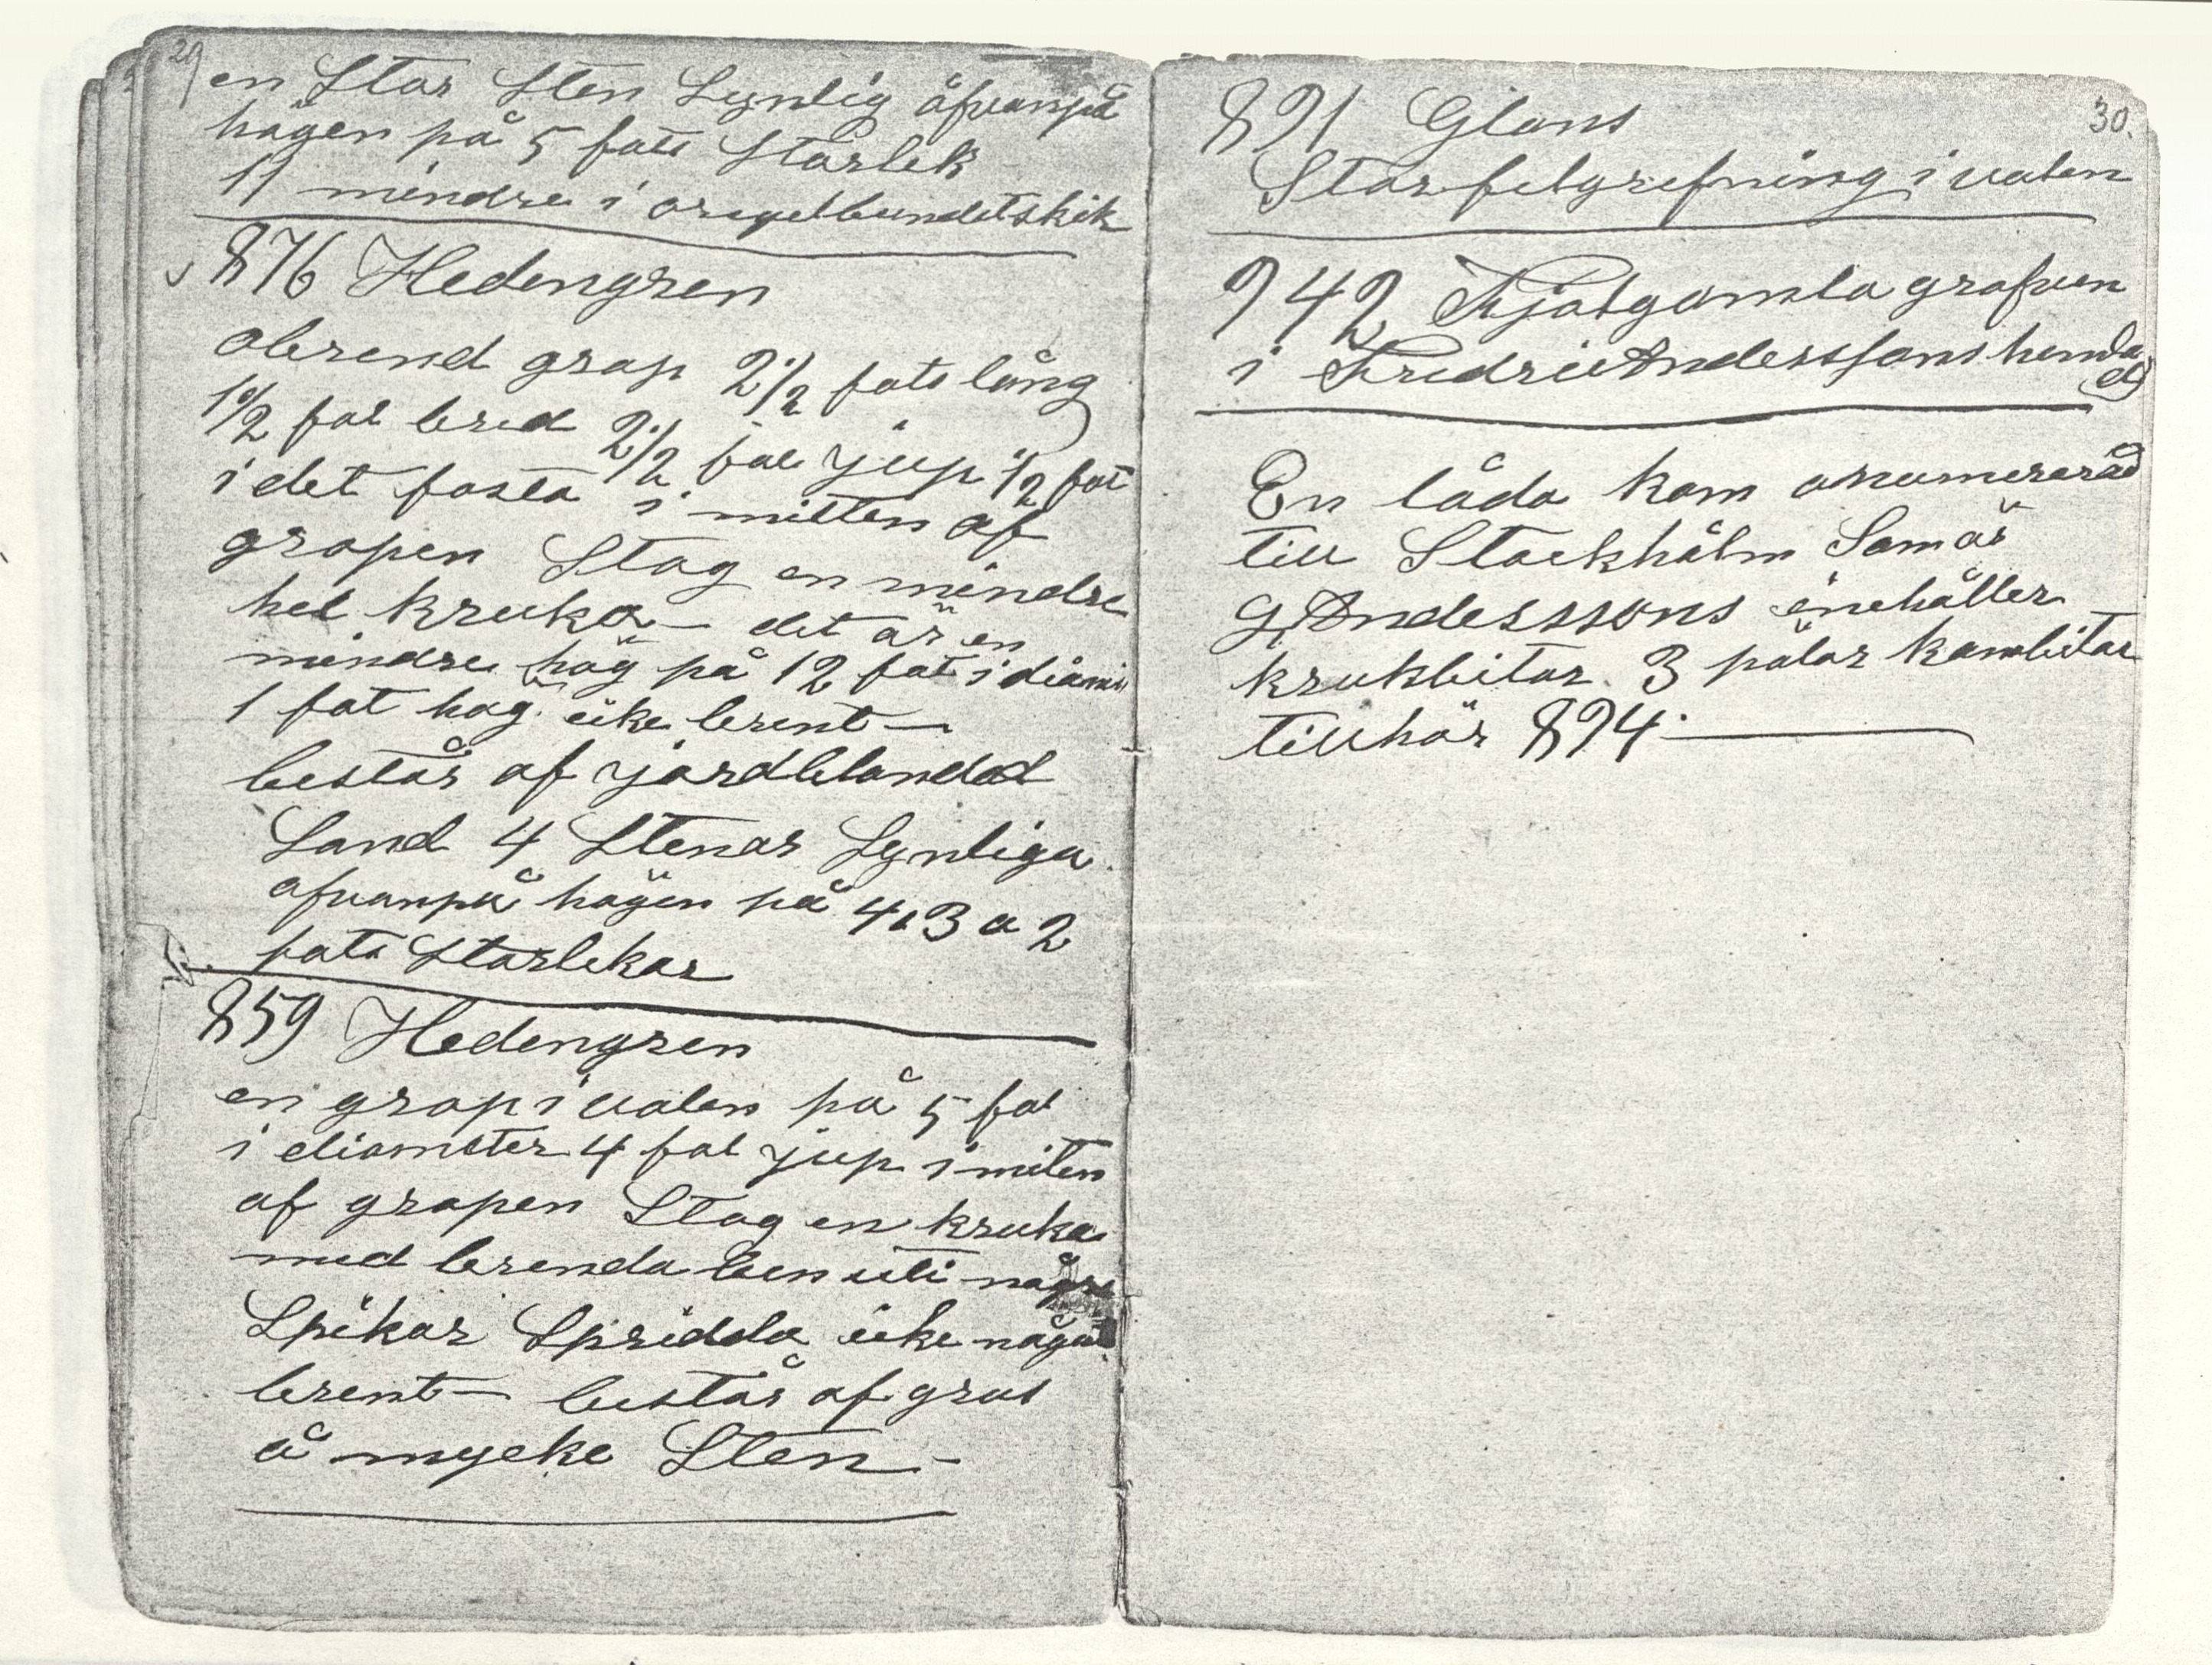 29
en Stor Sten Synlig åfvanpå
högen på 5 fots Storlek
11 mindre i oregelbundetskik
876 Hedengren
obrend grop 2 1/2 fots lång
1 1/2 fot bred 2 1/2 fot jup 1/2 fot
i det fasta i mitten af
gropen Stog en mindre
hel kruka – det är en
mindre hög på 12 fot i diam
1 fot hög icke brent –
består af jordblandad
Sand 4 Stenar Synliga
ofvanpå högen på 4, 3 a 2
fots Storlekar
859 Hedengren
en grop i valen på 5 fot
i diamæter 4 fot jup i miten
af gropen Stog en kruka
med brenda ben uti några
Spikar Spridda icke någåt
brent – består af grus
å mycke Sten –
30.
891 Glans
Stor felgrefning i valen
942 Kjälgamla grafven
i Fredric Anderssons hemla
En låda kom onumererad
till Stockhålm Som är
G Andesssons inehåller
krukbitar 3 pälar kambitar
tillhör 894 –